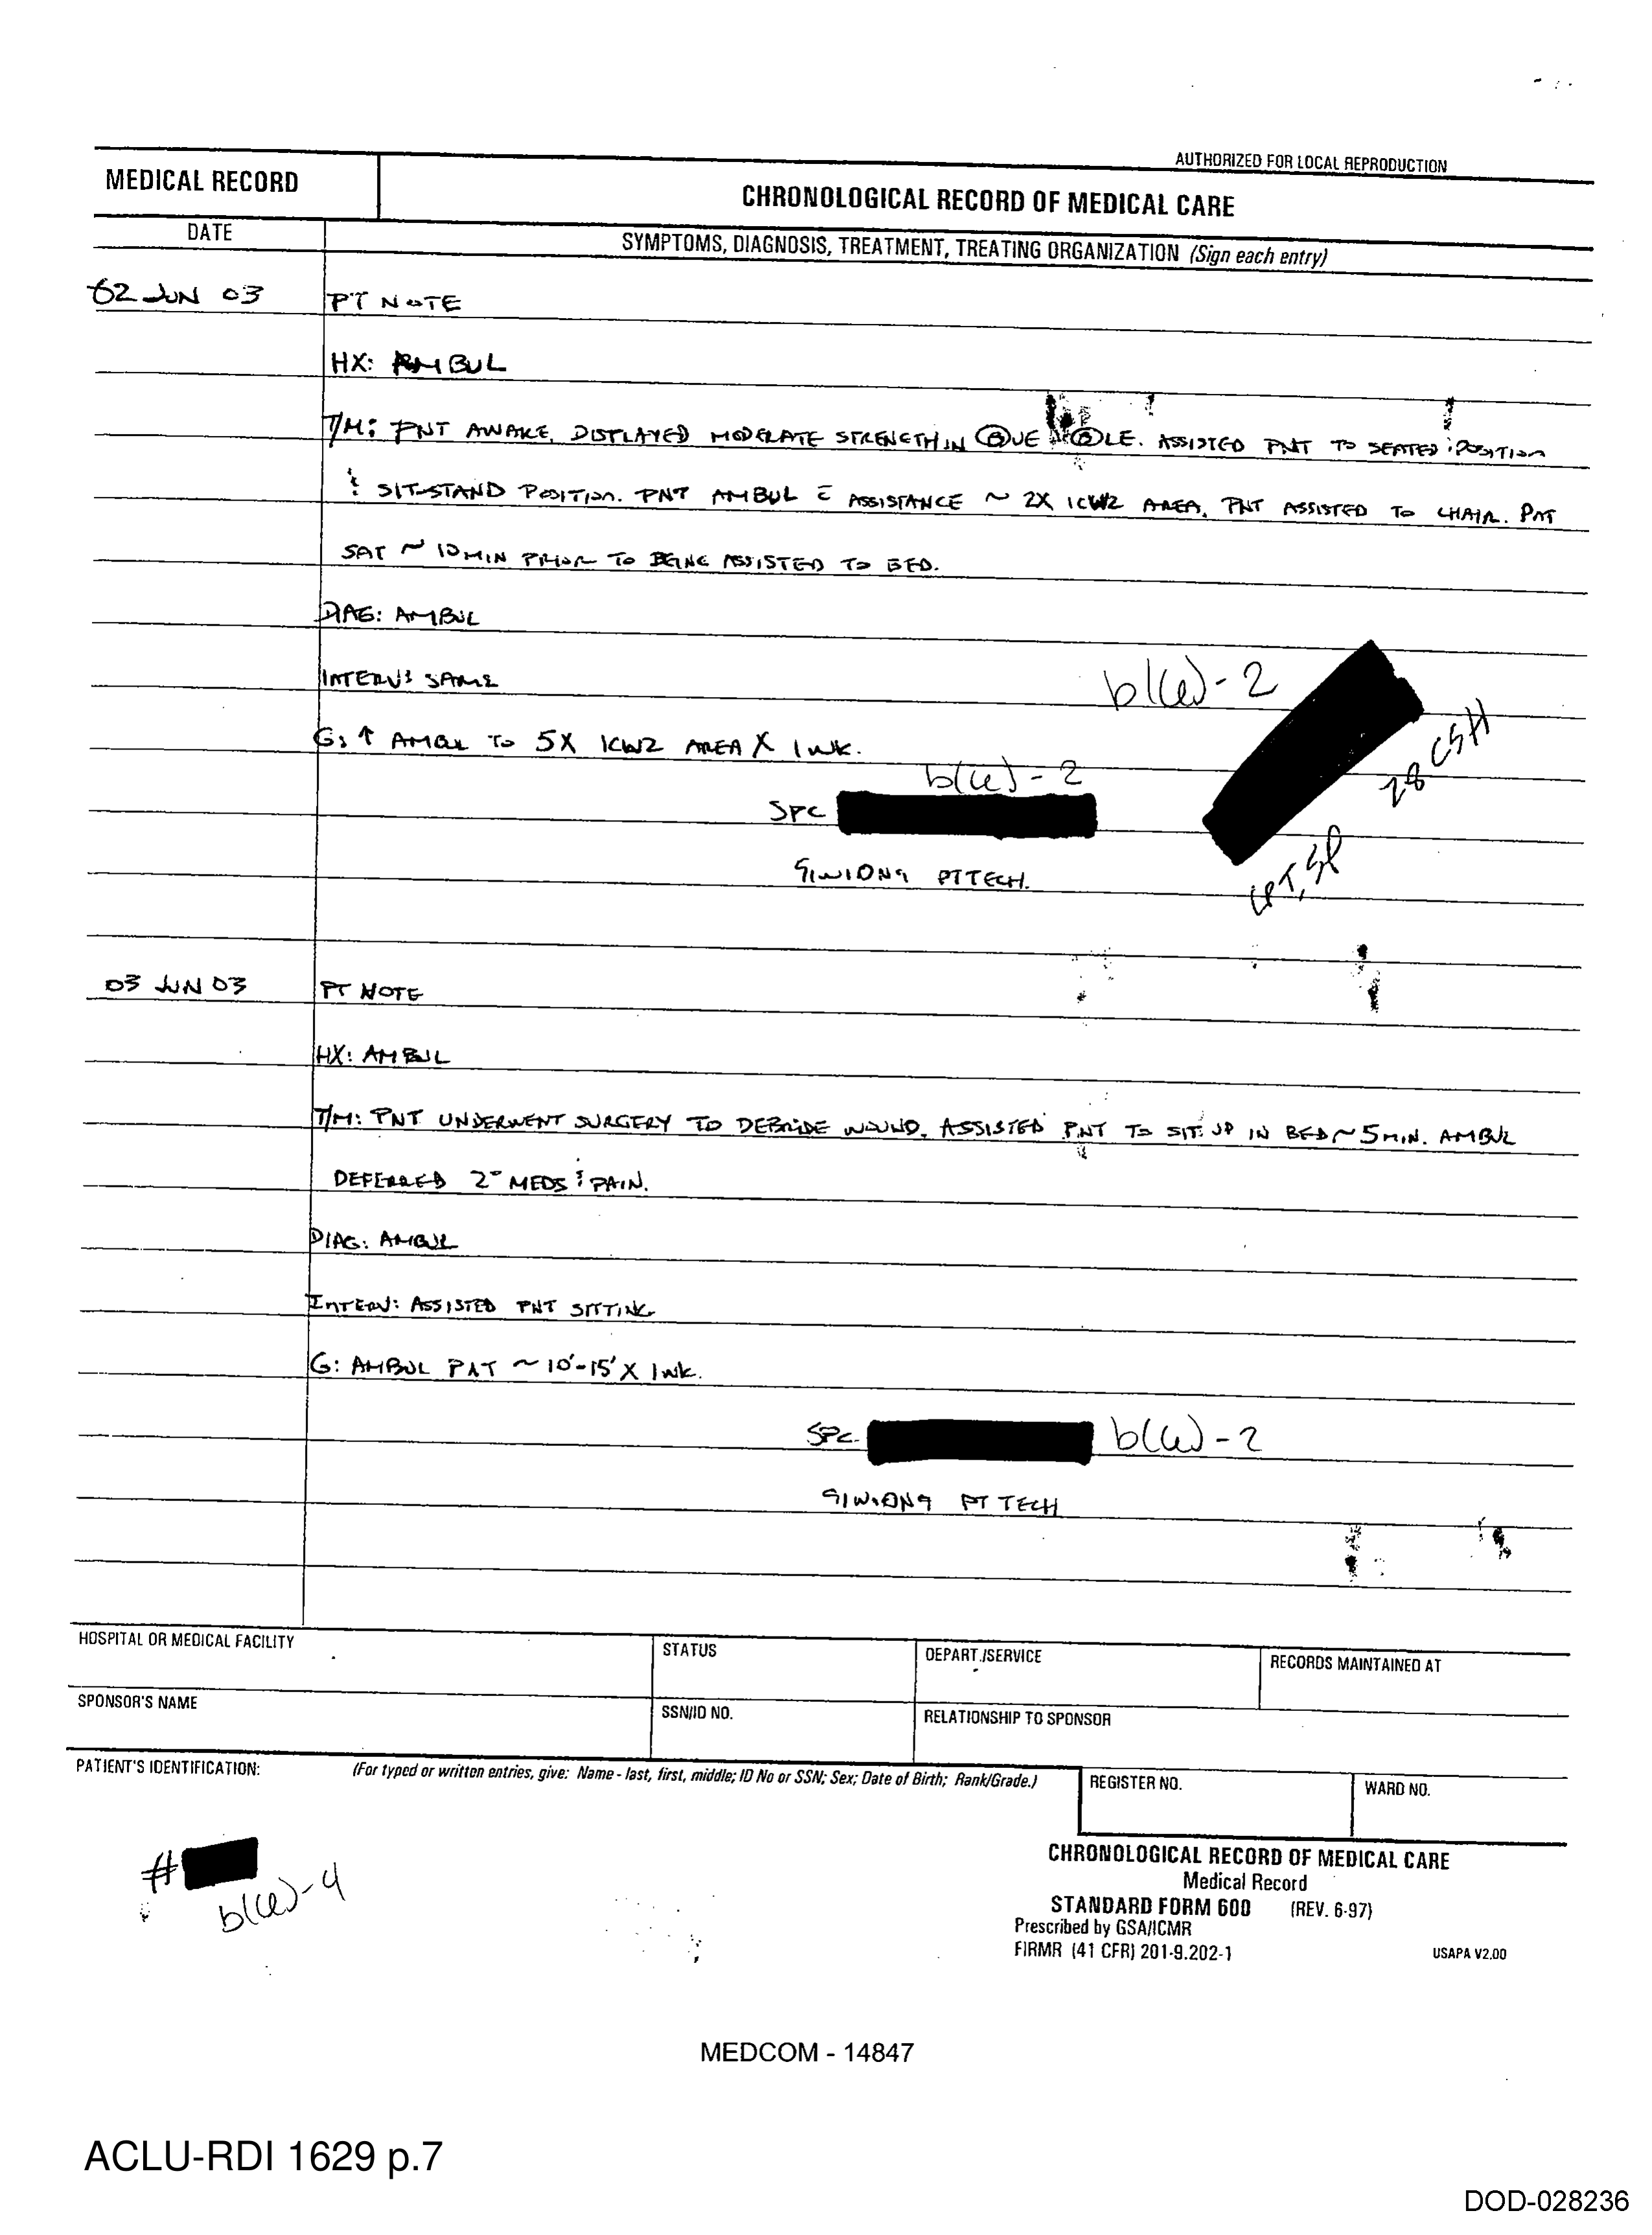 AUTHORIZED FOR LOCAL REPRODUCTION
MEDICAL RECORD
CHRONOLOGICAL RECORD OF MEDICAL CARE
DATE
SYMPTOMS, DIAGNOSIS, TREATMENT, TREATING ORGANIZATION (Sign each entry)
02 JUN 03 PT NOTE
HX: AMBUL
T/M: PNT AWAKE, DISPLAYED MODERATE STRENGTH IN Ⓑ UE Ⓑ LE. ASSISTED PNT TO SEATED POSITION
SIT-STAND POSITION. PNT AMBUL c̄ ASSISTANCE ~ 2X ICW2 AREA. PNT ASSISTED TO CHAIR. PNT
SAT ~ 10 MIN PRIOR TO BEING ASSISTED TO BED.
DIAG: AMBUL
INTERV: SAME
b(6)-2
G: ↑ AMBUL TO 5X ICW2 AREA X 1 WK.
28 CSH
b(6)-2
SPC
CPT, SP
91W10N9 PT TECH.
03 JUN 03 PT NOTE
HX: AMBUL
T/M: PNT UNDERWENT SURGERY TO DEBRIDE WOUND. ASSISTED PNT TO SIT UP IN BED ~ 5 MIN. AMBUL
DEFERRED 2° MEDS & PAIN.
DIAG: AMBUL
INTERV: ASSISTED PNT SITTING
G: AMBUL PAT ~ 10'-15' X 1 WK.
SPC b(6)-2
91W10N9 PT TECH
HOSPITAL OR MEDICAL FACILITY
STATUS
DEPART./SERVICE
RECORDS MAINTAINED AT
SPONSOR'S NAME
SSN/ID NO.
RELATIONSHIP TO SPONSOR
PATIENT'S IDENTIFICATION: (For typed or written entries, give: Name - last, first, middle; ID No or SSN; Sex; Date of Birth; Rank/Grade.)
REGISTER NO.
WARD NO.
#
b(6)-4
CHRONOLOGICAL RECORD OF MEDICAL CARE
Medical Record
STANDARD FORM 600 (REV. 6-97)
Prescribed by GSA/ICMR
FIRMR (41 CFR) 201-9.202-1
USAPA V2.00
MEDCOM - 14847
ACLU-RDI 1629 p.7
DOD-028236